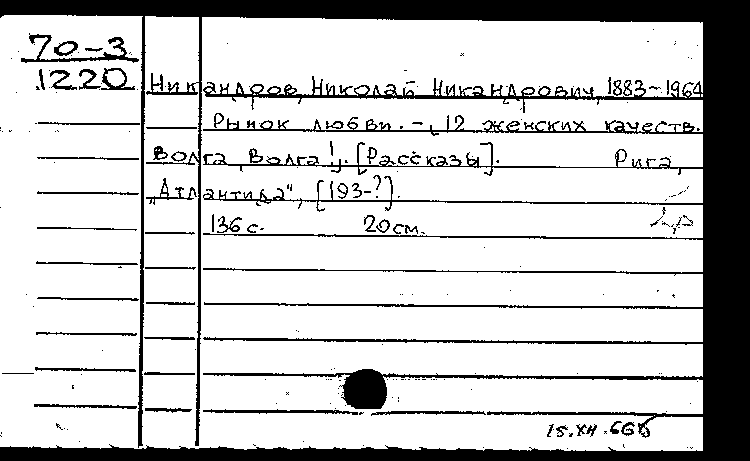 70-3
1220
Никандров, Николай Никандрович, 1883-1964
Рынок любви. - 12 женских качеств.
Волга, Волга!. [Рассказы]. Рига,
"Атлантида", [193-?].
136 с. 20 см.